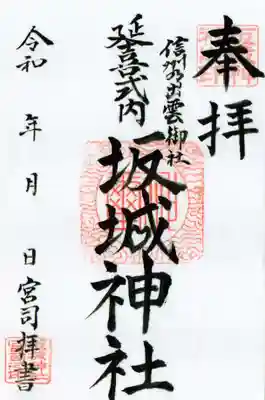 奉拝
信州乃出雲御社
延喜式内
坂城神社
令和 年 月 日
宮司拝書